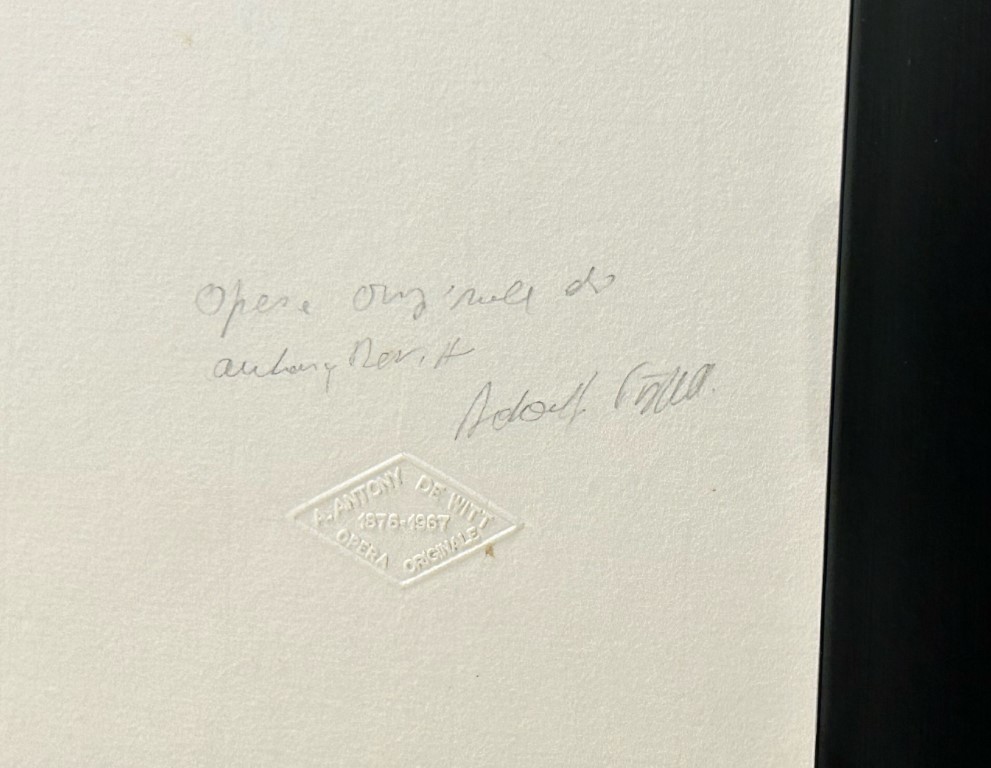 Opera originale di
antony Dewitt
Adolf
A. ANTONY DE WITT
1876-1967
OPERA ORIGINALE